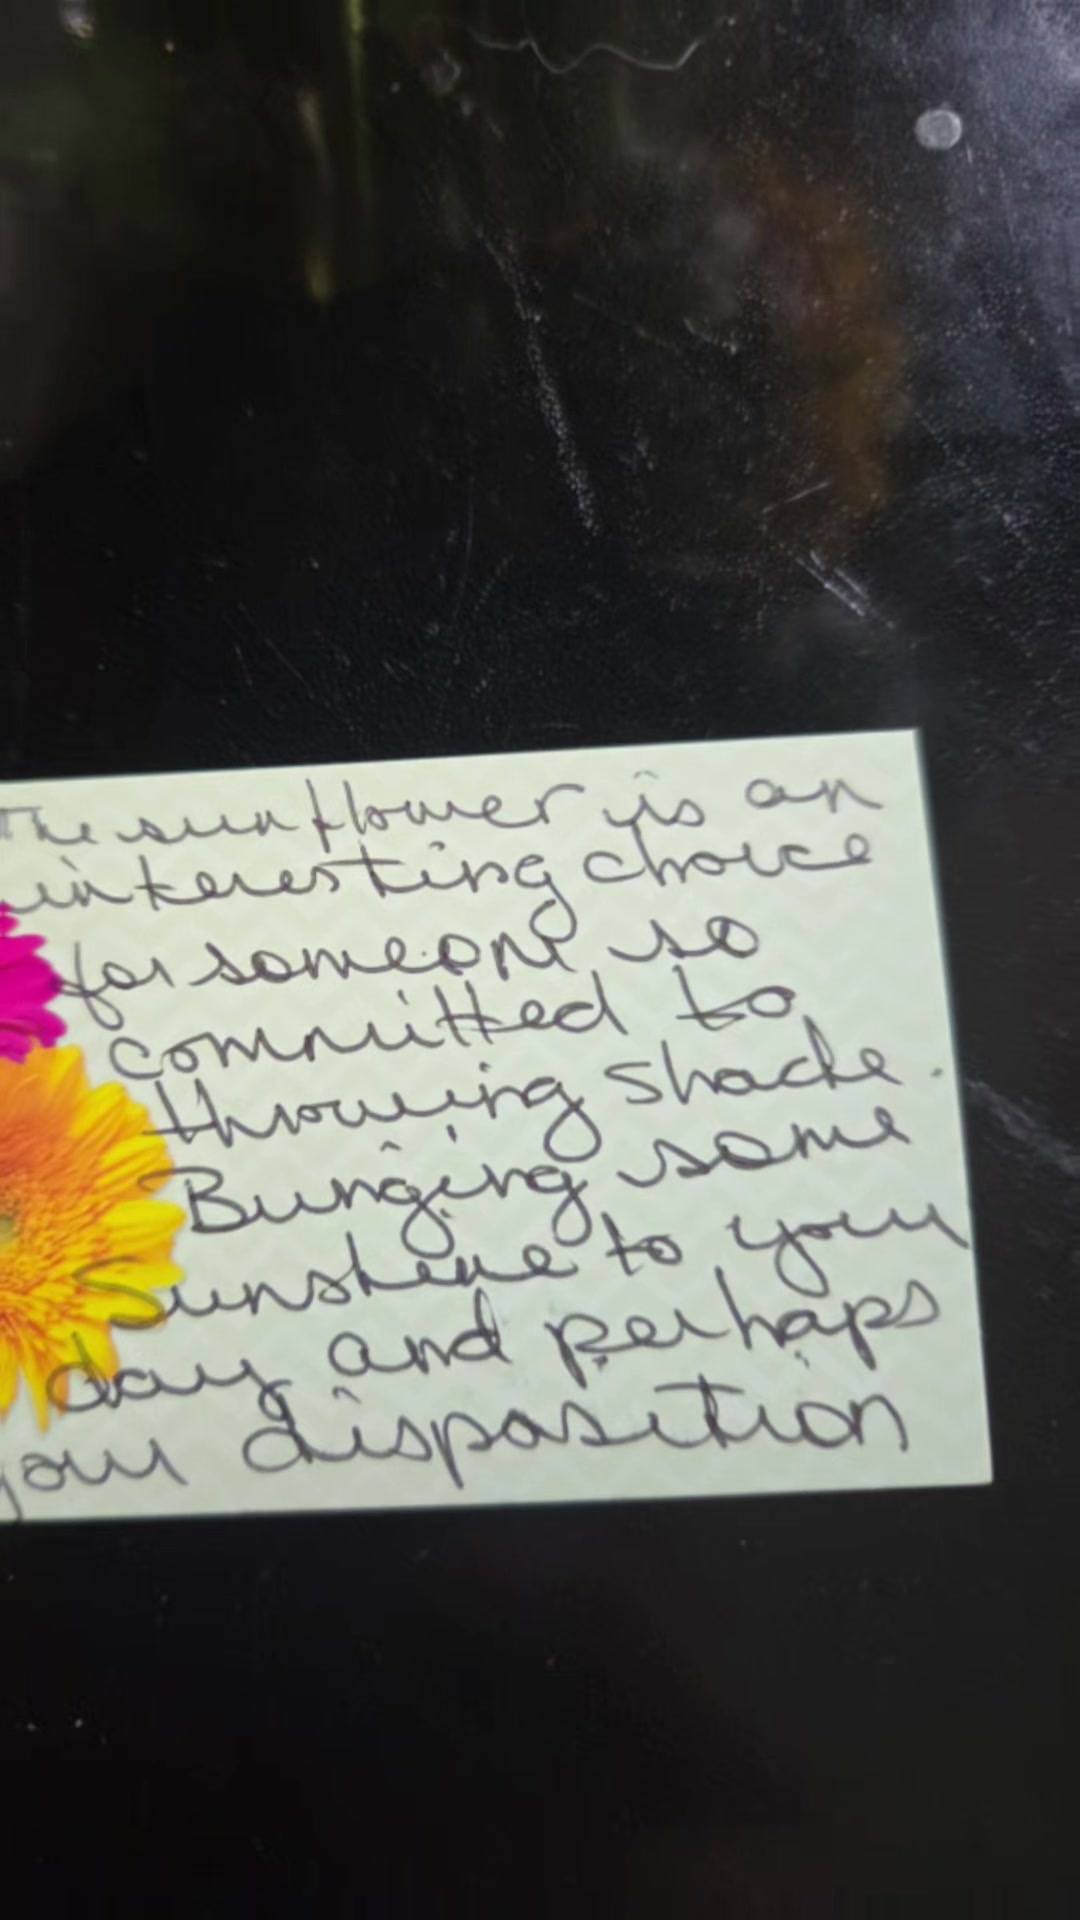 The sunflower is an
interesting choice
for someone so
committed to
throwing shade.
Bringing some
Sunshine to your
day and perhaps
your disposition